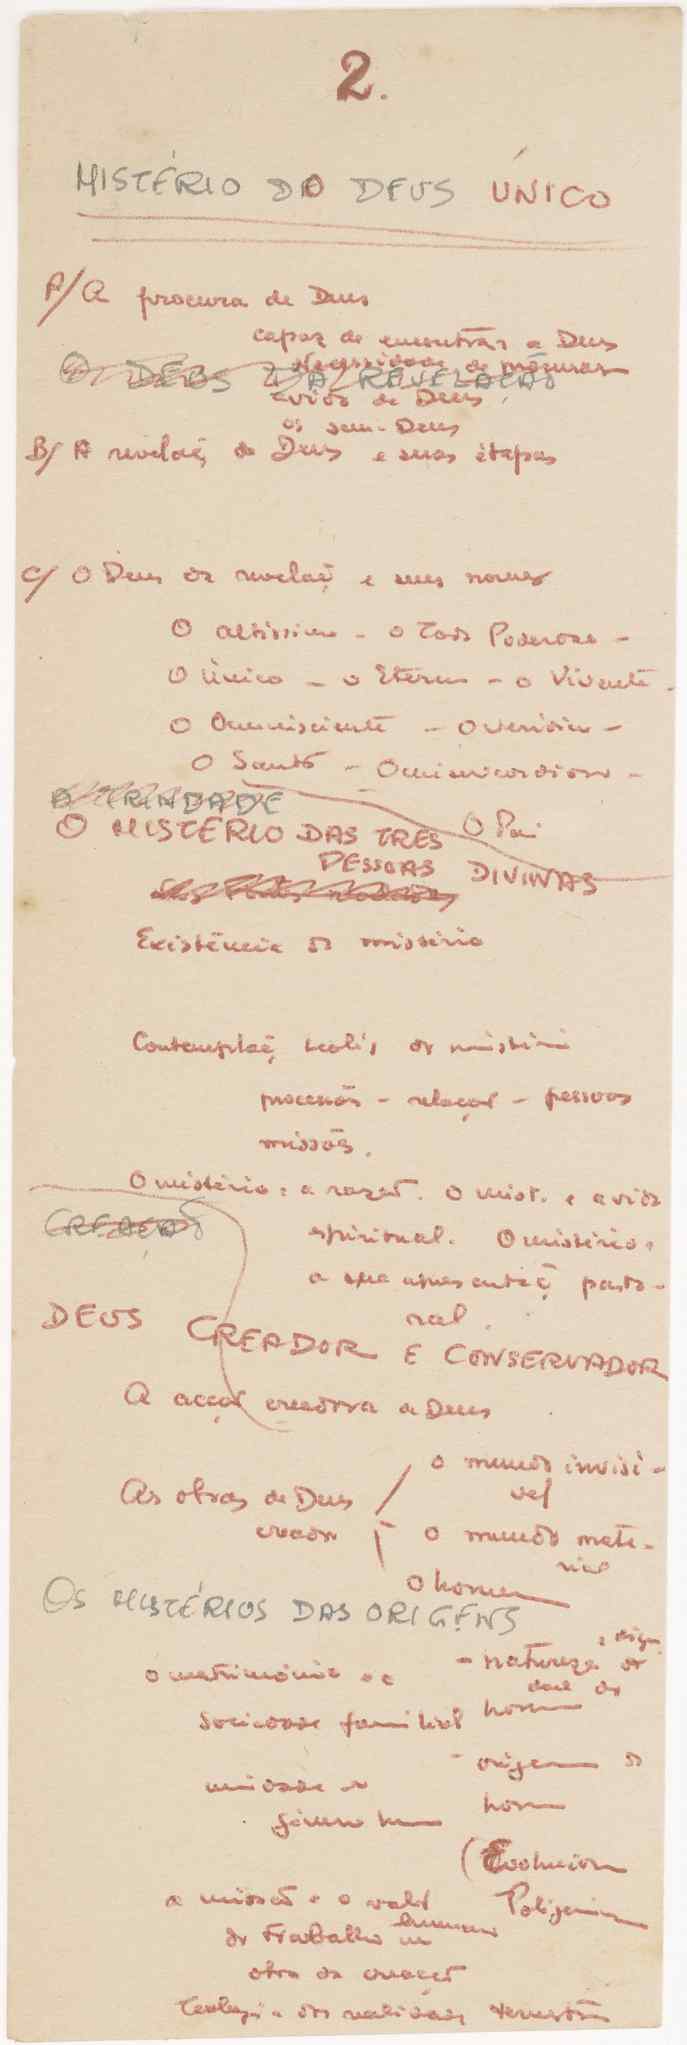 2.
MISTÉRIO DO DEUS ÚNICO
A/ A procura de Deus
capaz de encontrar a Deus
Necessidade de procurar
O DEUS DA REVELAÇÃO
a vida de Deus
os sem-Deus
B/ A revelaç de Deus e suas étapas
C/ O Deus da revelaç e seus nomes
O altíssimo - o Todo Poderoso -
O Único - o Eterno - o Vivente -
O Omnisciente - O verídico -
O Santo - O misericordioso -
A TRINDADE
O Pai
O MISTÉRIO DAS TRES
PESSOAS DIVINAS
Existência do mistério
Contemplaç teol. do mistério
processões - relações - pessoas
missões.
O mistério e a razão. O mist. e a vida
CREAÇÃO
espiritual. O mistério e
a sua apresentaç pasto-
ral.
DEUS CREADOR E CONSERVADOR
A acção creadora de Deus
o mundo invisí-
vel
As obras de Deus
creador
o mundo mate-
rial
O homem
OS MISTÉRIOS DAS ORIGENS
o matrimónio e a
- natureza e dign
dade do
homem
sociedade familial
- origem do
homem
unidade do
género hum
(Evolucion
Poligenism
a missão e o valor
do trabalho humano
na
obra da creação
Teologia das realidades terrestres